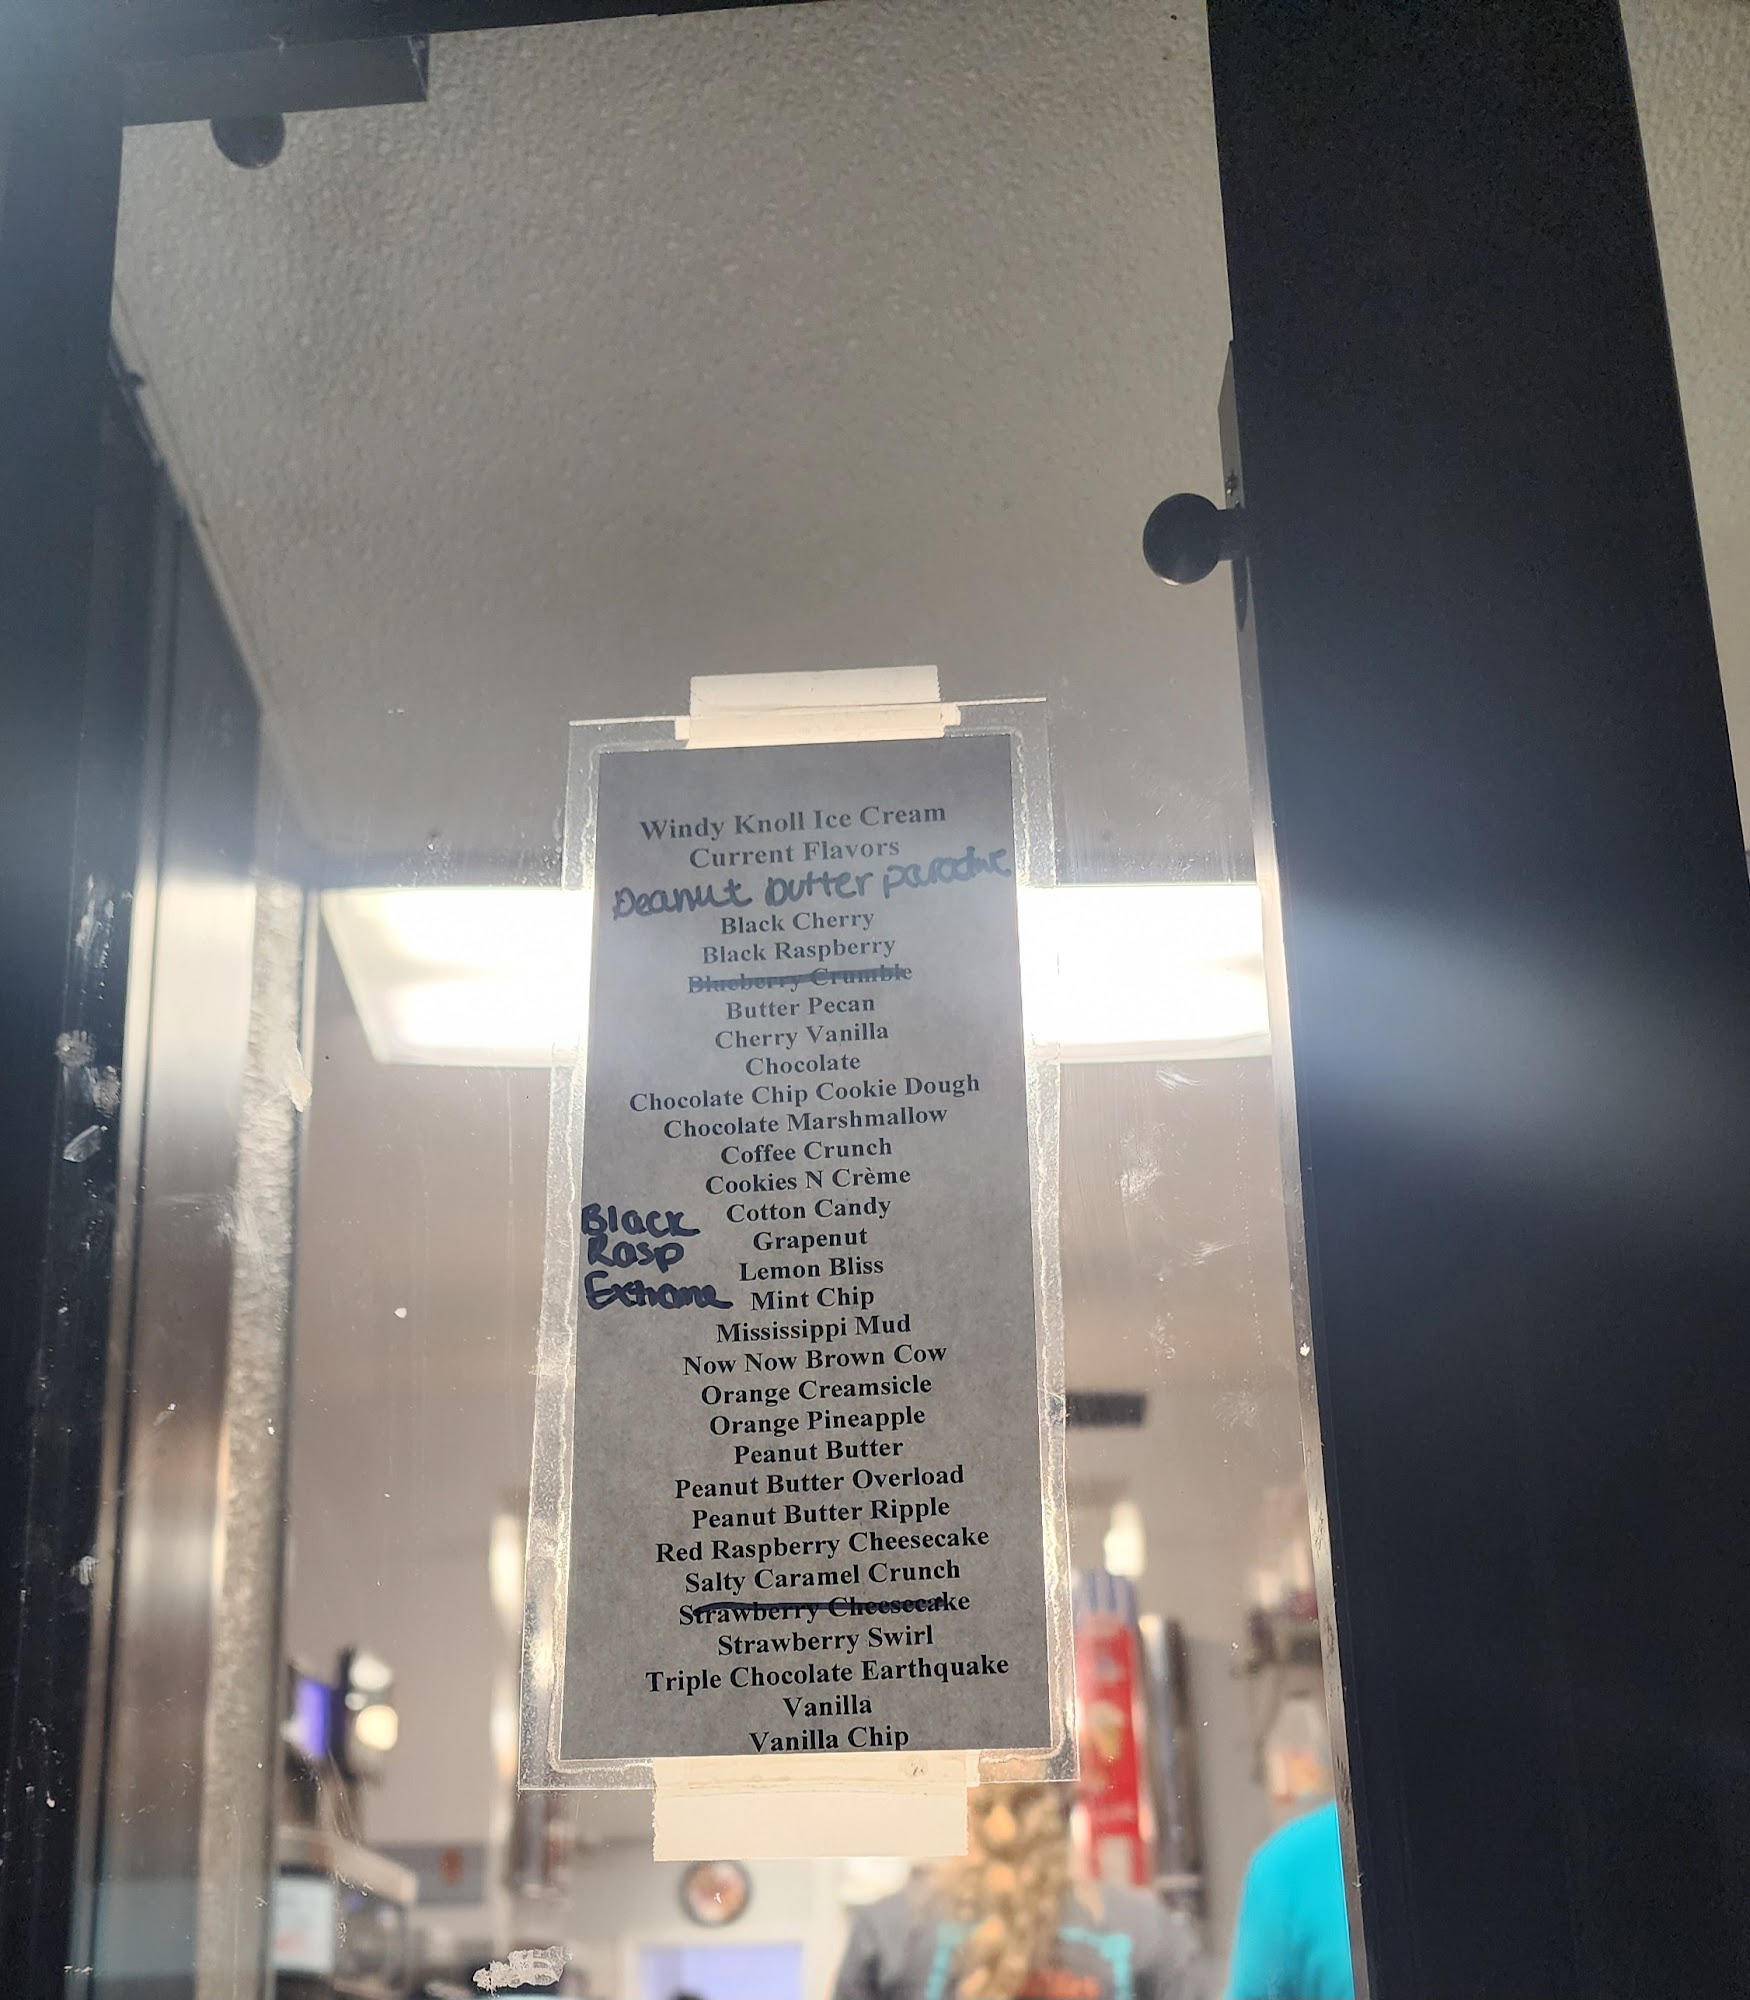 Windy Knoll Ice Cream
Current Flavors
Peanut butter paradise
Black Cherry
Black Raspberry
Blueberry Crumble
Butter Pecan
Cherry Vanilla
Chocolate
Chocolate Chip Cookie Dough
Chocolate Marshmallow
Coffee Crunch
Cookies N Crème
Cotton Candy
Grapenut
Lemon Bliss
Mint Chip
Black
Rasp
Extreme
Mississippi Mud
Now Now Brown Cow
Orange Creamsicle
Orange Pineapple
Peanut Butter
Peanut Butter Overload
Peanut Butter Ripple
Red Raspberry Cheesecake
Salty Caramel Crunch
Strawberry Cheesecake
Strawberry Swirl
Triple Chocolate Earthquake
Vanilla
Vanilla Chip